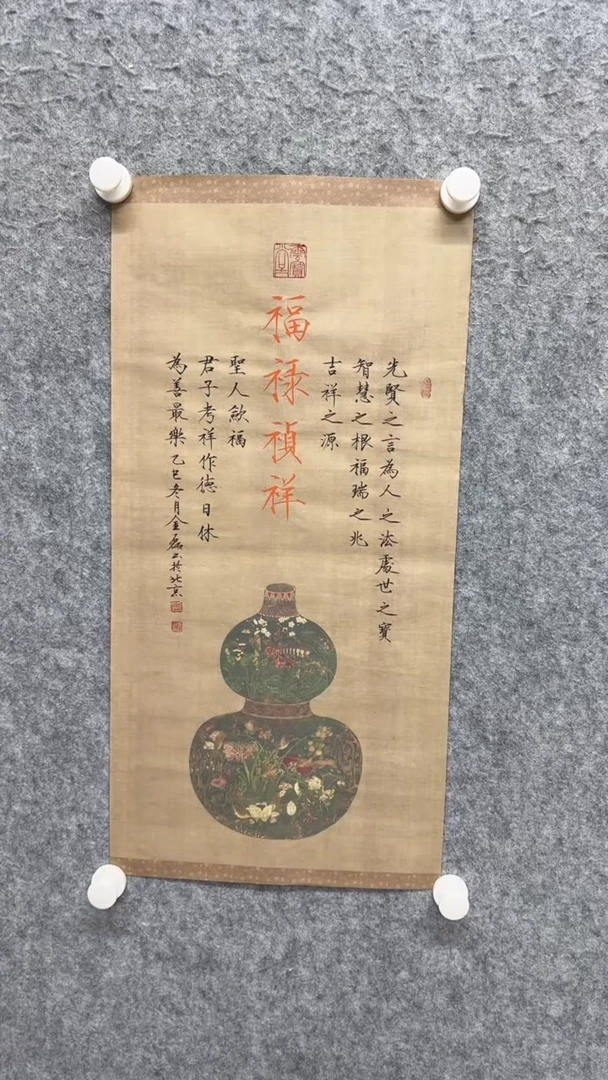 先賢之言為人之法處世之寶
智慧之根福瑞之兆
吉祥之源
福禄禎祥
聖人歛福
君子考祥作德日休
為善最樂乙巳冬月金磊书於北京